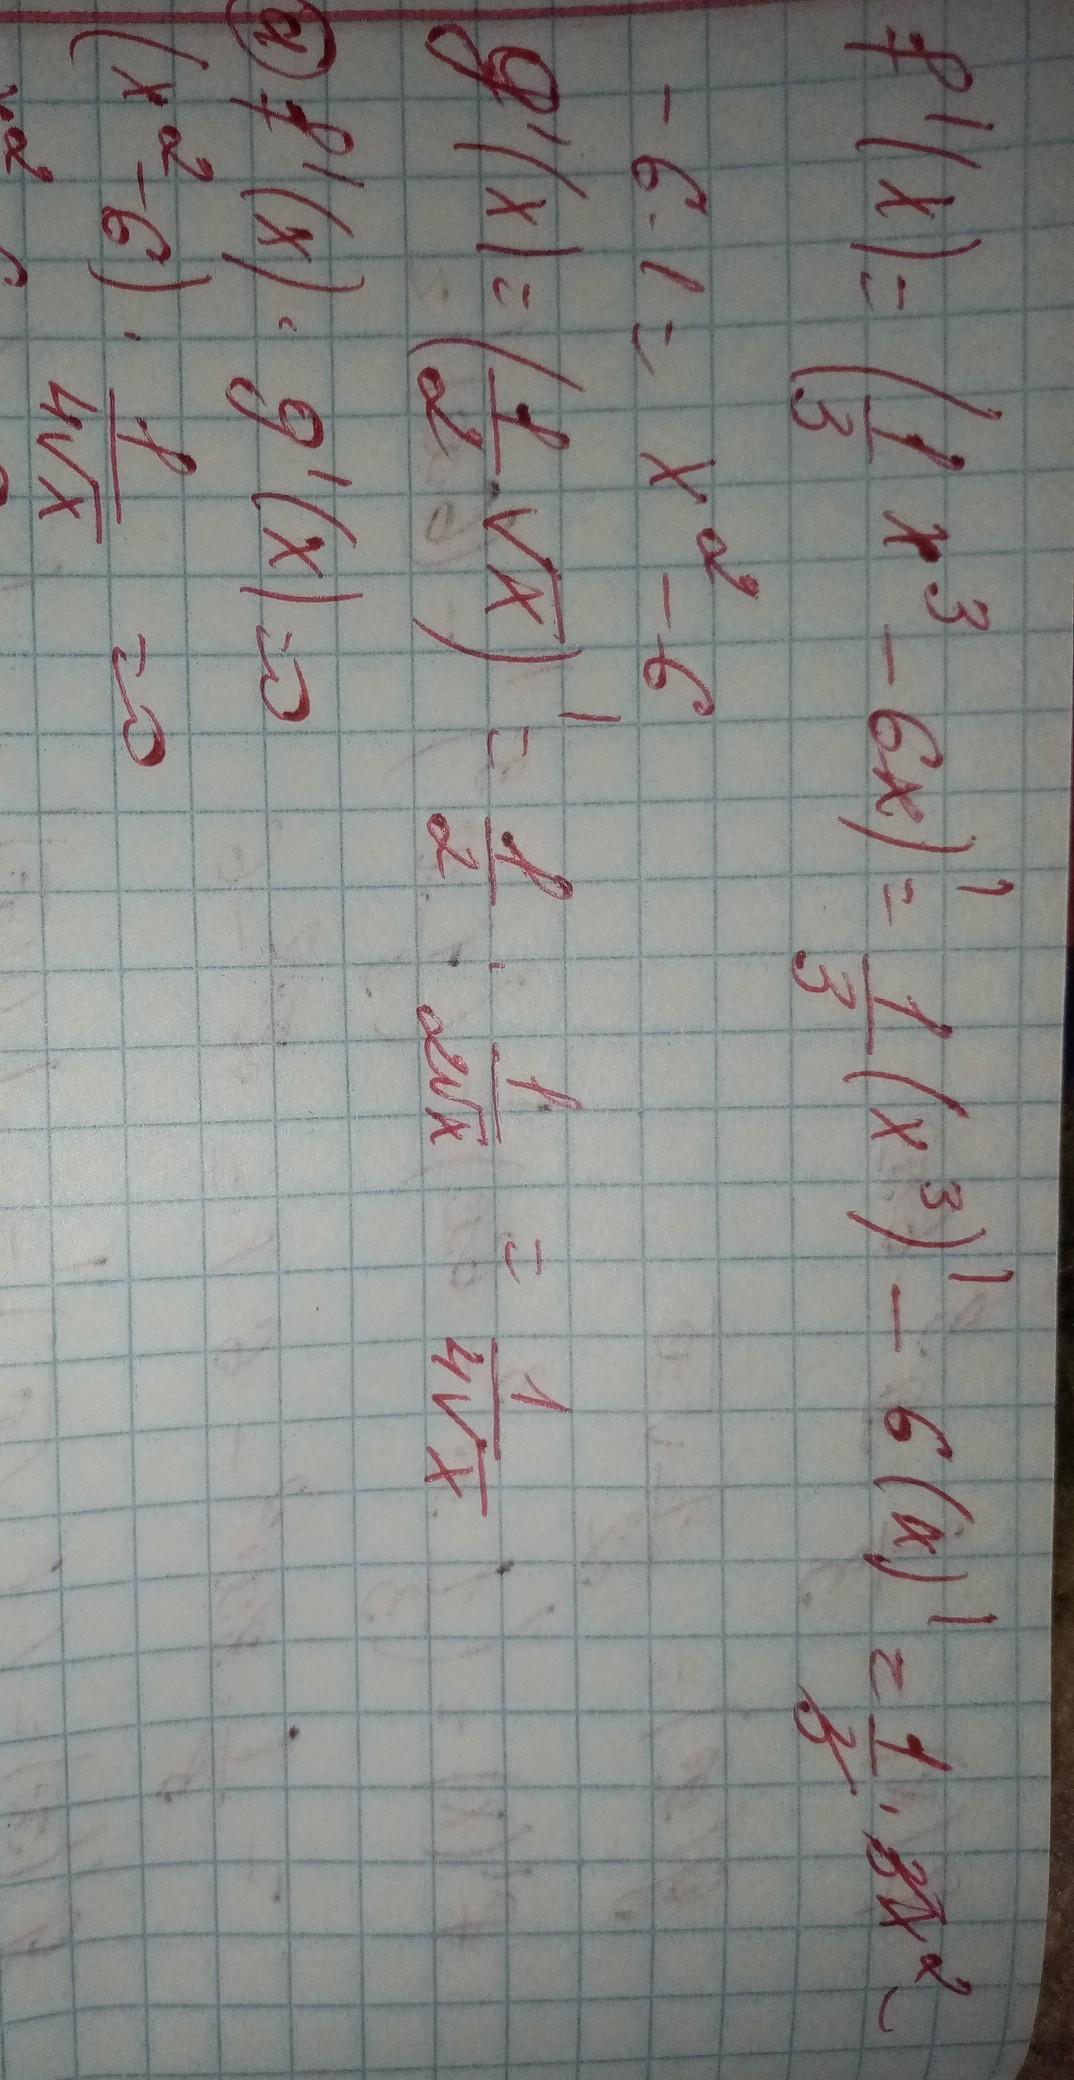 f'(x) = (1/3 x³ - 6x)' = 1/3 (x³)' - 6(x)' = 1/3 · 3x² -
- 6 · 1 = x² - 6
g'(x) = (1/2 √x)' = 1/2 · 1/(2√x) = 1/(4√x)
a) f'(x) · g'(x) = 0
(x² - 6) · 1/(4√x) = 0